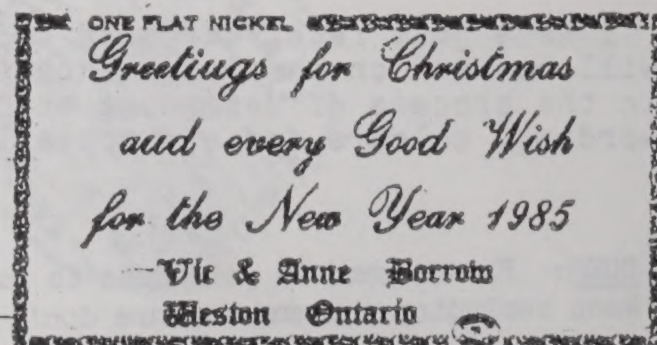 ONE FLAT NICKEL
Greetings for Christmas
and every Good Wish
for the New Year 1985
Vic & Anne Borrow
Weston Ontario